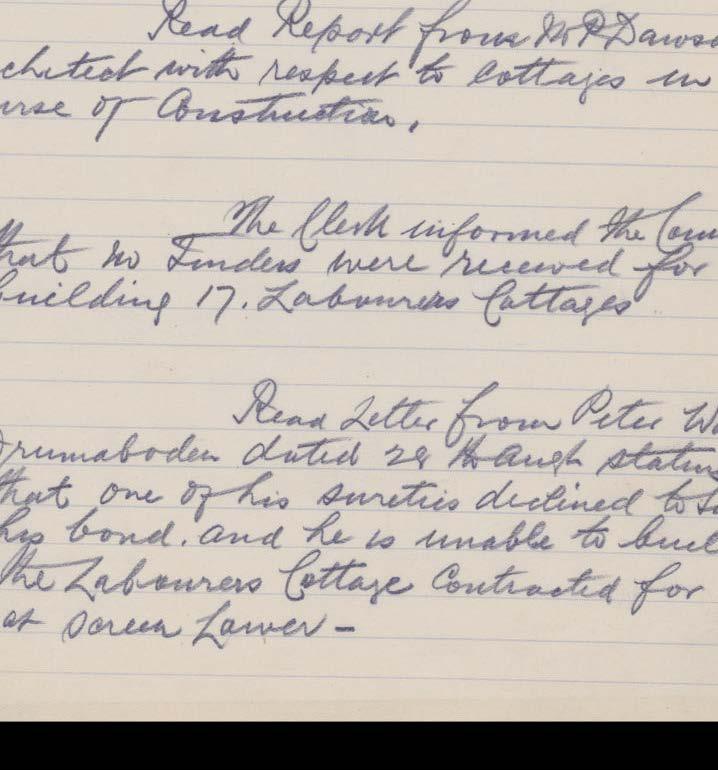 Read Report from Mr P Dawso
chitect with respect to Cottages in
urse of Construction,
The Clerk informed the Coun
that no Tenders were received for
building 17. Labourers Cottages
Read Letter from Peter
Drumaboden dated 28th Augt stating
that one of his sureties declined to
his bond. and he is unable to buil
the Labourers Cottage Contracted for
at Lower -